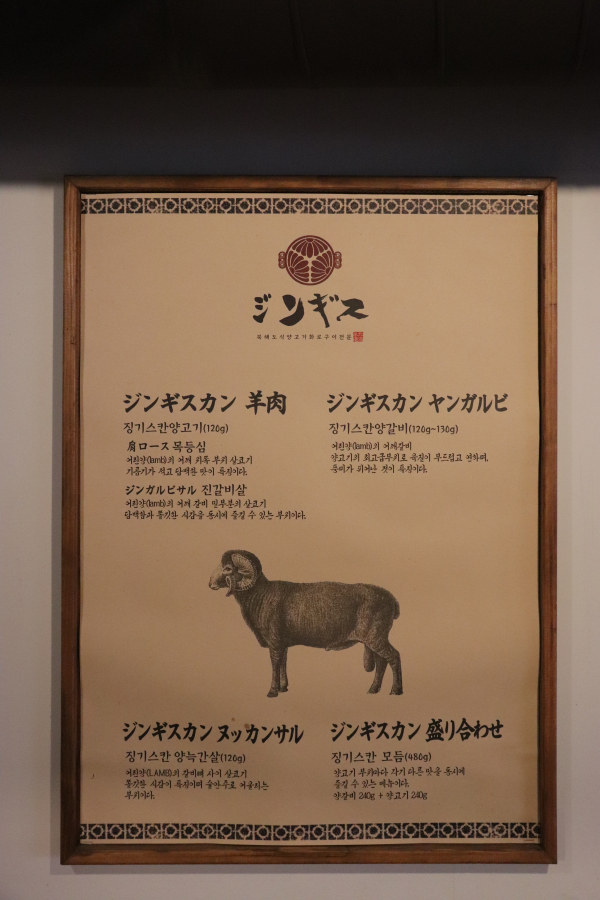 ジンギス
북해도식양고기화로구이전문
ジンギスカン 羊肉
징기스칸양고기(120g)
肩ロース 목등심
어린양(lamb)의 어깨 위쪽 부위 살코기
기름기가 적고 담백한 맛이 특징이다.
ジンガルビサル 진갈비살
어린양(lamb)의 어깨 갈비 윗부분의 살코기
담백함과 쫄깃한 식감을 동시에 즐길 수 있는 부위이다.
ジンギスカン ヤンガルビ
징기스칸양갈비(120g~130g)
어린양(lamb)의 어깨갈비
양고기의 최고급부위로 육질이 부드럽고 연하며,
풍미가 뛰어난 것이 특징이다.
ジンギスカン ヌッカンサル
징기스칸 양늑간살(120g)
어린양(LAMB)의 갈비뼈 사이 살코기
쫄깃한 식감이 특징이며 술안주로 어울리는
부위이다.
ジンギスカン 盛り合わせ
징기스칸 모듬(480g)
양고기 부위마다 각기 다른 맛을 동시에
즐길 수 있는 메뉴이다.
양갈비 240g + 양고기 240g